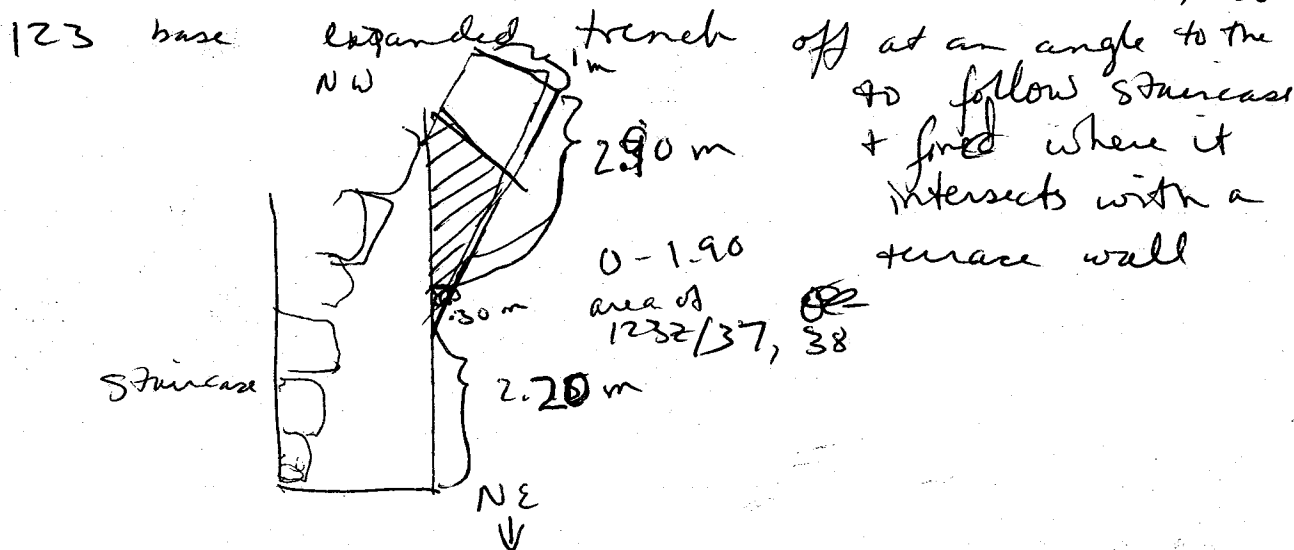 123 base expanded trench off at an angle to the
NW 1m to follow staircase
2.90 m + find where it
intersects with a
0-1.90 terrace wall
area of
.30 m 123Z/37, 38
staircase 2.20 m
NE